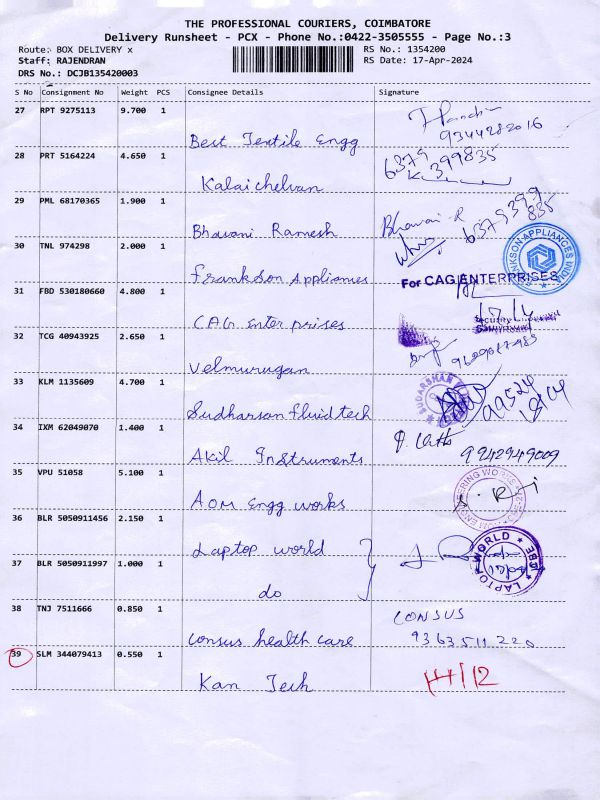 THE PROFESSIONAL COURIERS, COIMBATORE
Delivery Runsheet - PCX - Phone No.:0422-3505555 - Page No.:3
Route: BOX DELIVERY x
RS No.: 1354200
Staff: RAJENDRAN
RS Date: 17-Apr-2024
DRS No.: DCJB135420003
S No Consignment No Weight PCS Consignee Details Signature
27 RPT 9275113 9.700 1
9344282016
Best Textile Engg
28 PRT 5164224 4.650 1
6379
399835
Kalaichelvan
29 PML 68170365 1.900 1
Bhavani R
6379399
835
Bhavani Ramesh
30 TNL 974298 2.000 1
Frankson Appliances
For CAG ENTERPRISES
31 FBD 530180660 4.800 1
17/4
CAG. Enterprises
32 TCG 40943925 2.650 1
Velmurugan
33 KLM 1135609 4.700 1
99524
Sudharson fluidtech
34 IXM 62049070 1.400 1
9942949009
Akil Instruments
35 VPU 51058 5.100 1
AOM Engg works
36 BLR 5050911456 2.150 1
Laptop world
LAPTOP WORLD
37 BLR 5050911997 1.000 1
do
38 TNJ 7511666 0.850 1
CONSUS
9363511220
Consus health care
39 SLM 344079413 0.550 1
Kan Tech